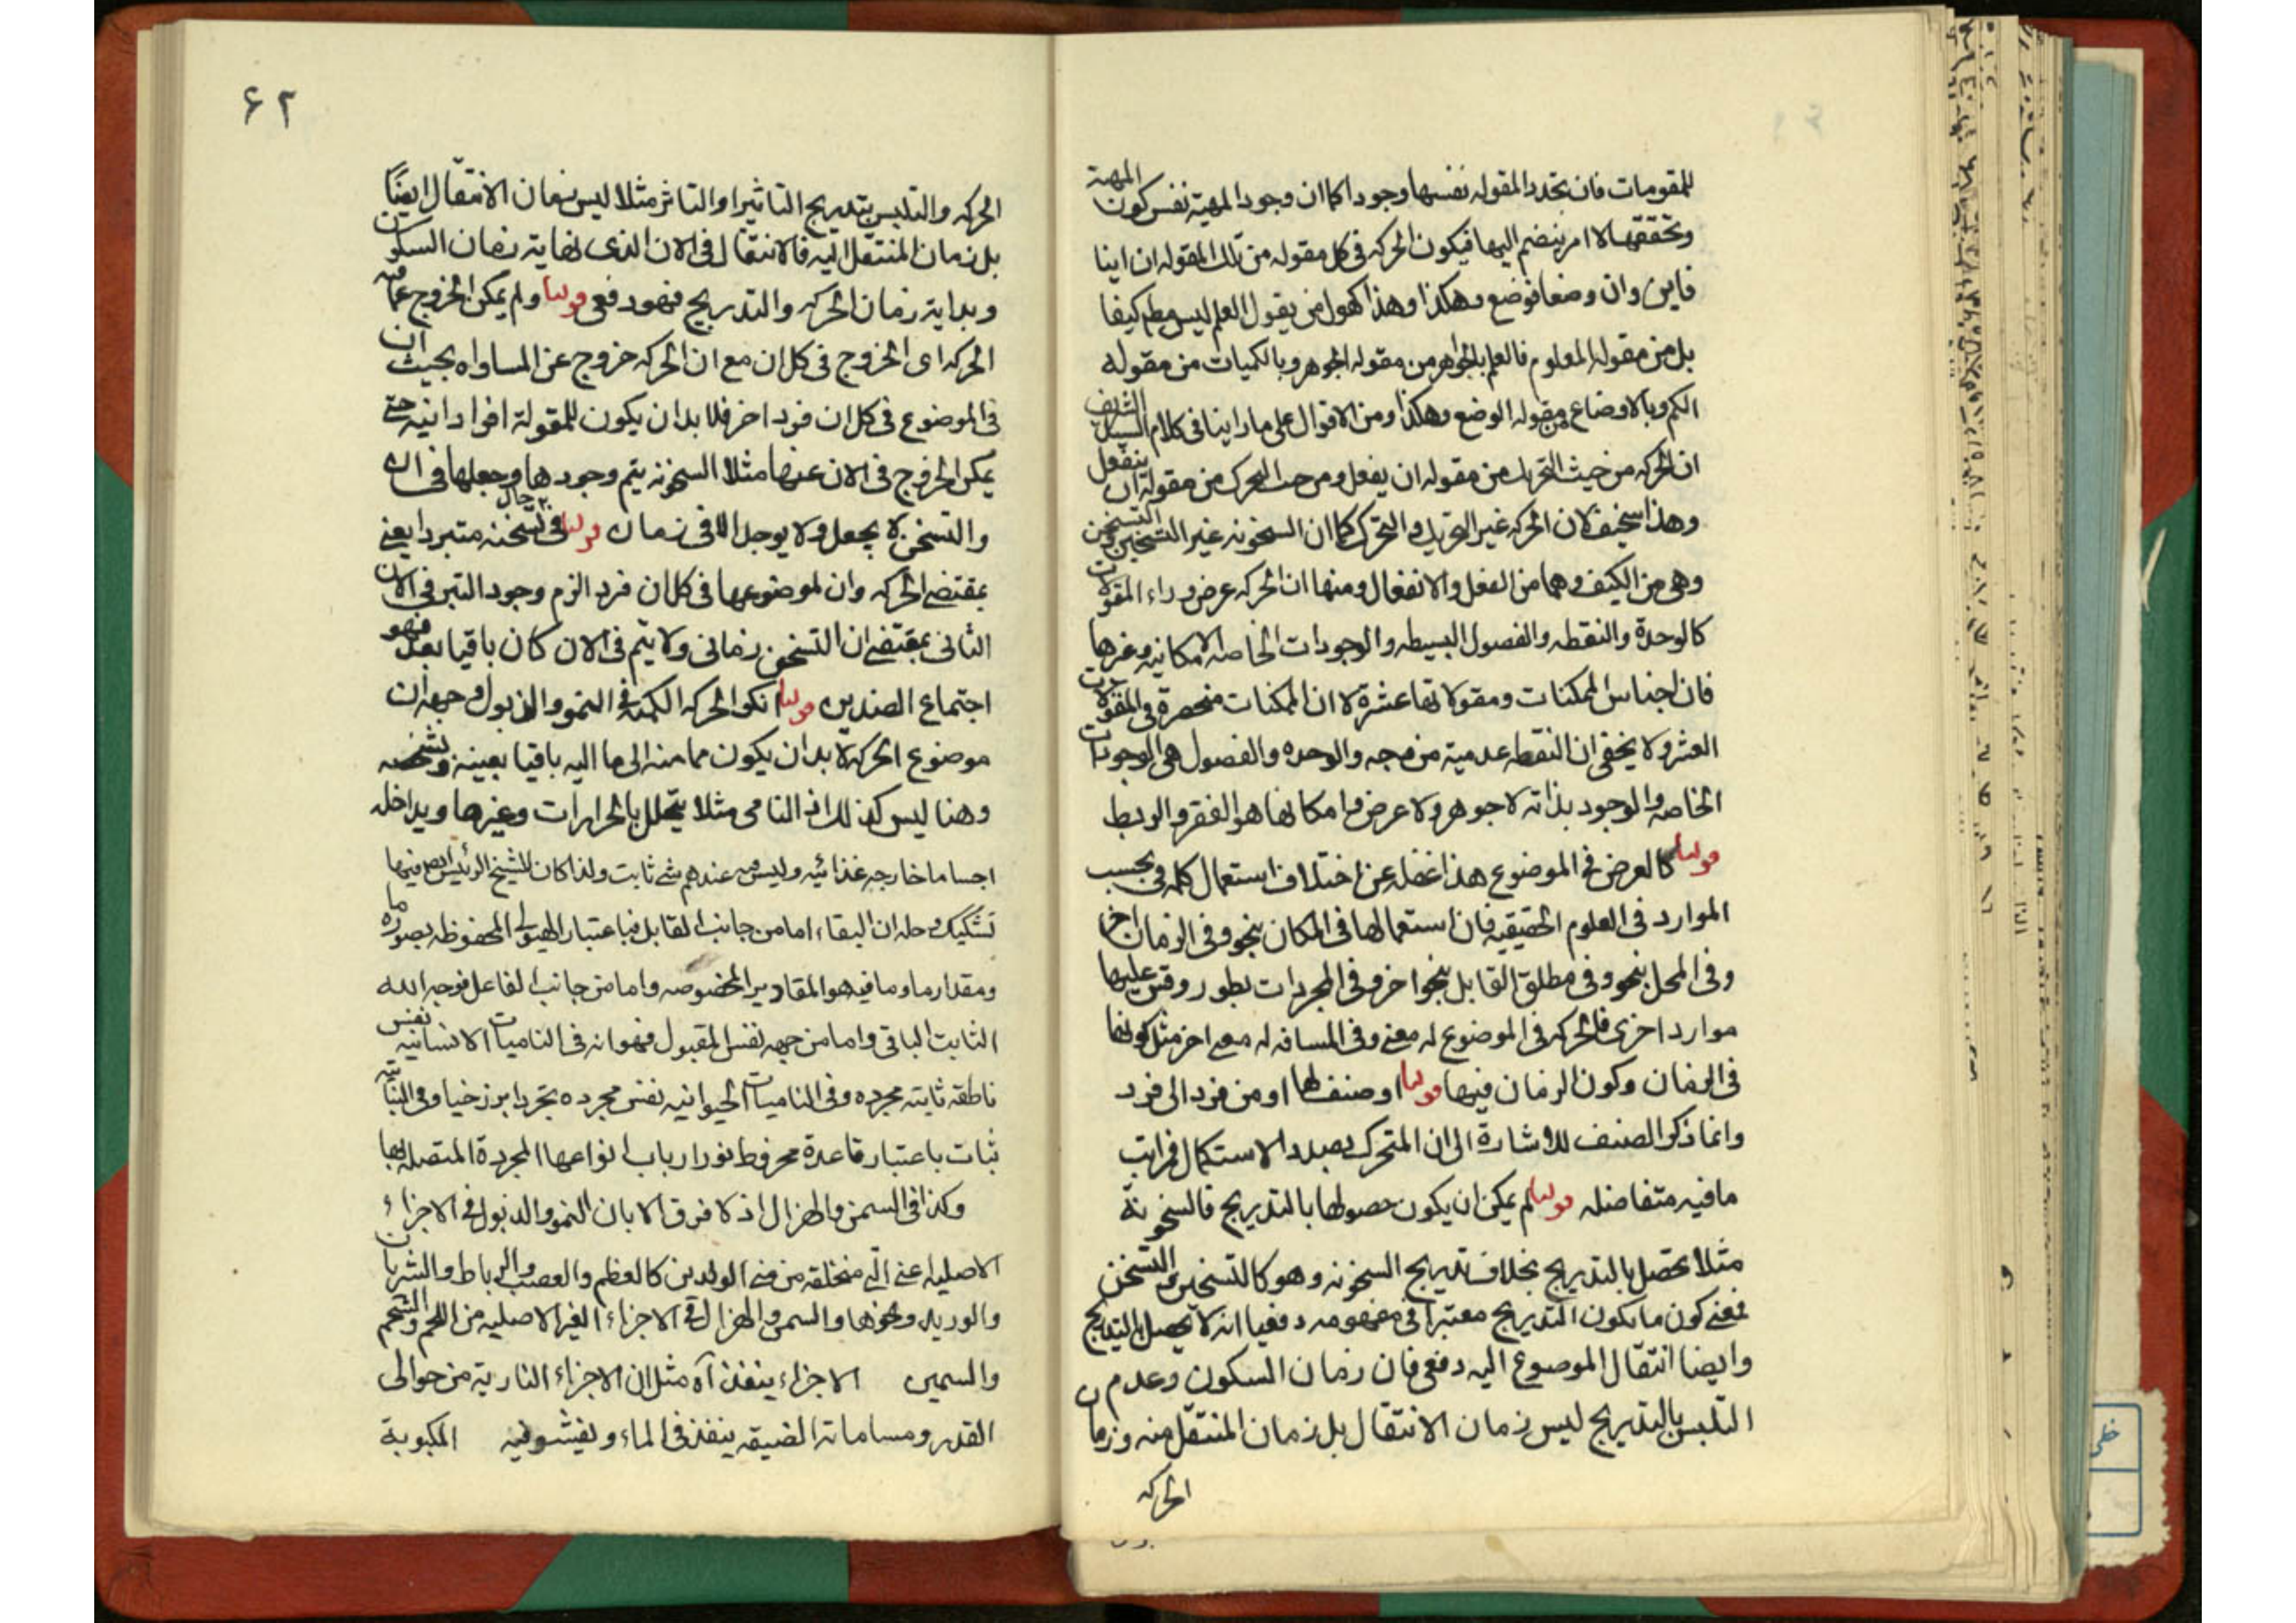 للمقومات فان تجدد المقوله نفسها وجودا كما ان وجود المهية نفس كون المهية
وتحققها لا امر ينضم اليها فيكون الحركه فى كل مقوله من تلك المقوله ان اينا
فاين وان وضعا فوضع وهكذا وهذا كقول من يقول العلم ليس مطم كيفا
بل من مقوله المعلوم فالعلم بالجواهر من مقوله الجوهر وبالكميات من مقوله
الكم وبالاوضاع من مقوله الوضع وهكذا ومن الاقوال على ما راينا فى كلام السيد الشريف
ان الحركه من حيث التحريك من مقوله ان يفعل ومن حيث التحرك من مقوله ان ينفعل
وهذا سخيف لان الحركه غير التحريك والتحرك كما ان السخونه غير التسخين والتسخن
وهى من الكيف وهما من الفعل والانفعال ومنها ان الحركه عرض وراء المقولات
كالوحدة والنقطه والفصول البسيطه والوجودات الخاصه الامكانيه وغيرها
فان اجناس الممكنات ومقولاتها عشرة لا ان الممكنات منحصرة فى المقولات
العشر ولا يخفى ان النقطه عدمية من وجه والوحده والفصول هى الوجودات
الخاصه والوجود بذاته لا جوهر ولا عرض وامكانها هو الفقر والربط
قولنا كالعرض فى الموضوع هذا غفله عن اختلاف استعمال كلمه فى بحسب
الموارد فى العلوم الحقيقيه فان استعمالها فى المكان بنحو وفى الزمان اخر
وفى المحل بنحو وفى مطلق القابل بنحو اخر وفى المجردات بطور وقس عليها
موارد اخرى فالحركه فى الموضوع له معنى وفى المسافه له معنى اخر مثل كونها
فى الزمان وكون الزمان فيها قولنا او صنف لها او من فرد الى فرد
وانما ذكر الصنف للاشارة الى ان المتحرك بصدد الاستكمال فمراتب
ما فيه متفاضله قولنا لم يمكن ان يكون حصولها بالتدريج فالسخونة
مثلا تحصل بالتدريج بخلاف تدريج السخونه وهو كالتسخين والتسخن
فمعنى كون ما يكون التدريج معتبرا فى مفهومه دفعيا انه لا يحصل بالتدريج
وايضا انتقال الموضوع اليه دفعى فان زمان السكون وعدم
التلبس بالتدريج ليس زمان الانتقال بل زمان المنتقل منه وزمان
الحركه
۶۲
الحركه والتلبس بتدريج التاثير او التاثر مثلا ليس زمان الانتقال ايضا
بل زمان المنتقل اليه فالانتقال فى الان الذى نهاية زمان السكون
وبداية زمان الحركه والتدريج فهو دفعى قولنا ولم يمكن الخروج عما فيه
الحركه اى الخروج فى كل ان مع ان الحركه خروج عن المساواه بحيث ان
فى الموضوع فى كل ان فرد اخر فلا بد ان يكون للمقولة افراد انيه حتى
يمكن الخروج فى الان عنها مثلا السخونه يتم وجودها وجعلها فى ان
والتسخن لا يجعل ولا يوجد الا فى زمان قولنا فى حال تسخنه متبردا يعنى
بمقتضى الحركه وان لموضوعها فى كل ان فرد الزم وجود التبرد فى الان
الثانى بمقتضى ان التسخن زمانى ولا يتم فى الان كان باقيا بعد فهو
اجتماع الضدين قولنا انكر الحركه الكميه فى النمو والذبول وجهه ان
موضوع الحركه لا بد ان يكون مما منه الى ما اليه باقيا بعينه وشخصه
وهنا ليس كذلك اذ النامى مثلا يتحلل بالحرارات وغيرها ويداخله
اجساما خارجه غذائيه وليس فيه عندهم شئ ثابت ولذا كان للشيخ الرئيس ايض فيها
تشكيك وحله ان البقاء اما من جانب القابل فباعتبار الهيولى المحفوظه بصورة ما
ومقدار ما وما فيه هو المقادير المخصوصه واما من جانب الفاعل فوجه الله
الثابت الباقى واما من جهه نفس المقبول فهو انه فى الناميات الانسانيه نفس
ناطقه ثابته مجرده وفى الناميات الحيوانيه نفس مجرده تجردا برزخيا وفى النباتيه
ثبات باعتبار قاعدة مخروط نور ارباب انواعها المجردة المتصله بها
وكذا فى السمن والهزال اذ لا فرق الا بان النمو والذبول فى الاجزاء
الاصليه اعنى التى منخلقه من منى الوالدين كالعظم والعصب والرباط والشريان
والوريد ونحوها والسمن والهزال فى الاجزاء الغير الاصليه من اللحم والشحم
والسمين الاجزاء ينفذ آه مثل ان الاجزاء النارية من حوالى
القدر ومساماته الضيقه ينفذ فى الماء ويفشو فيه المكبوبة